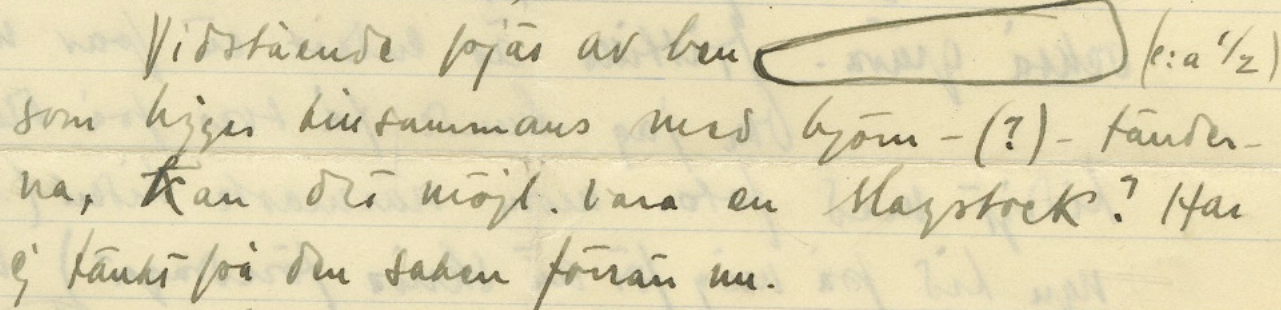 Vidstående pjäs av ben (c:a 1/2)
som ligger tillsammans med björn-(?)-tänder-
na, kan det möjl. vara en Slagstock? Har
ej tänkt på den saken förrän nu.